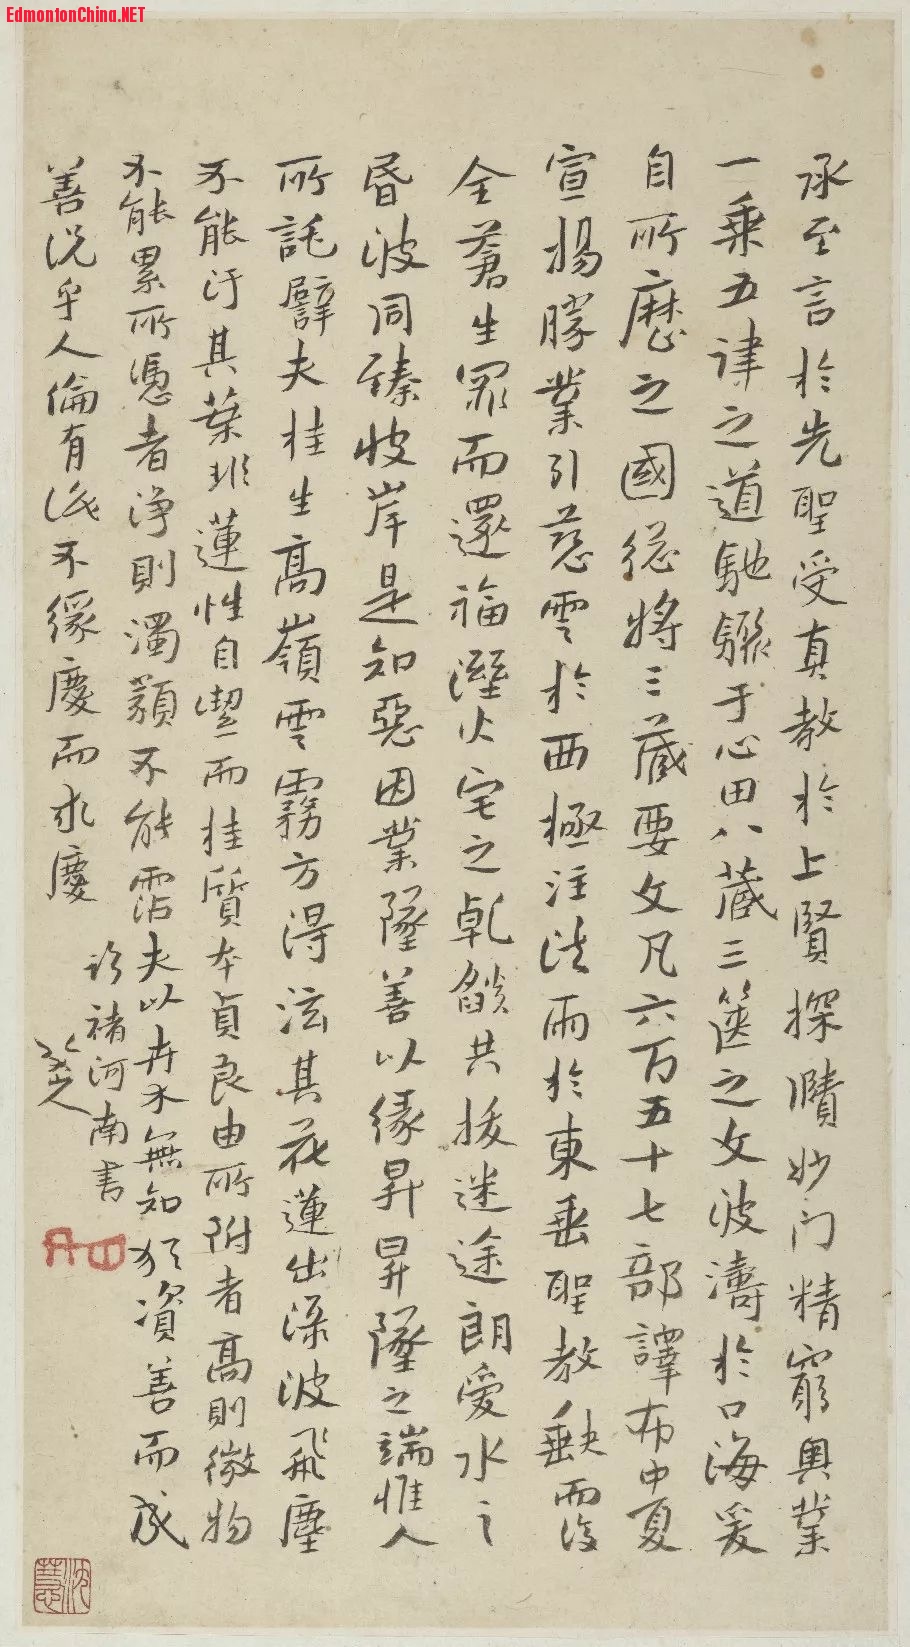 EdmontonChina.NET
承至言於先聖受真教於上賢探賾妙门精窮奥業
一乘五律之道馳驟于心田八藏三篋之文波濤於口海爰
自所歷之國總將三藏要文凡六百五十七部譯布中夏
宣揚勝業引慈雲於西極注法雨於東垂聖教缺而復
全蒼生罪而還福溼火宅之乹燄共拔迷途朗愛水之
昏波同臻彼岸是知惡因業墜善以緣昇昇墜之端惟人
所託譬夫桂生高嶺雲霧方得泫其花蓮出淥波飛塵
不能汙其葉非蓮性自潔而桂質本貞良由所附者高則微物
不能累所憑者淨則濁類不能霑夫以卉木無知猶資善而成
善況乎人倫有識不緣慶而求慶
臨褚河南書
八大山人